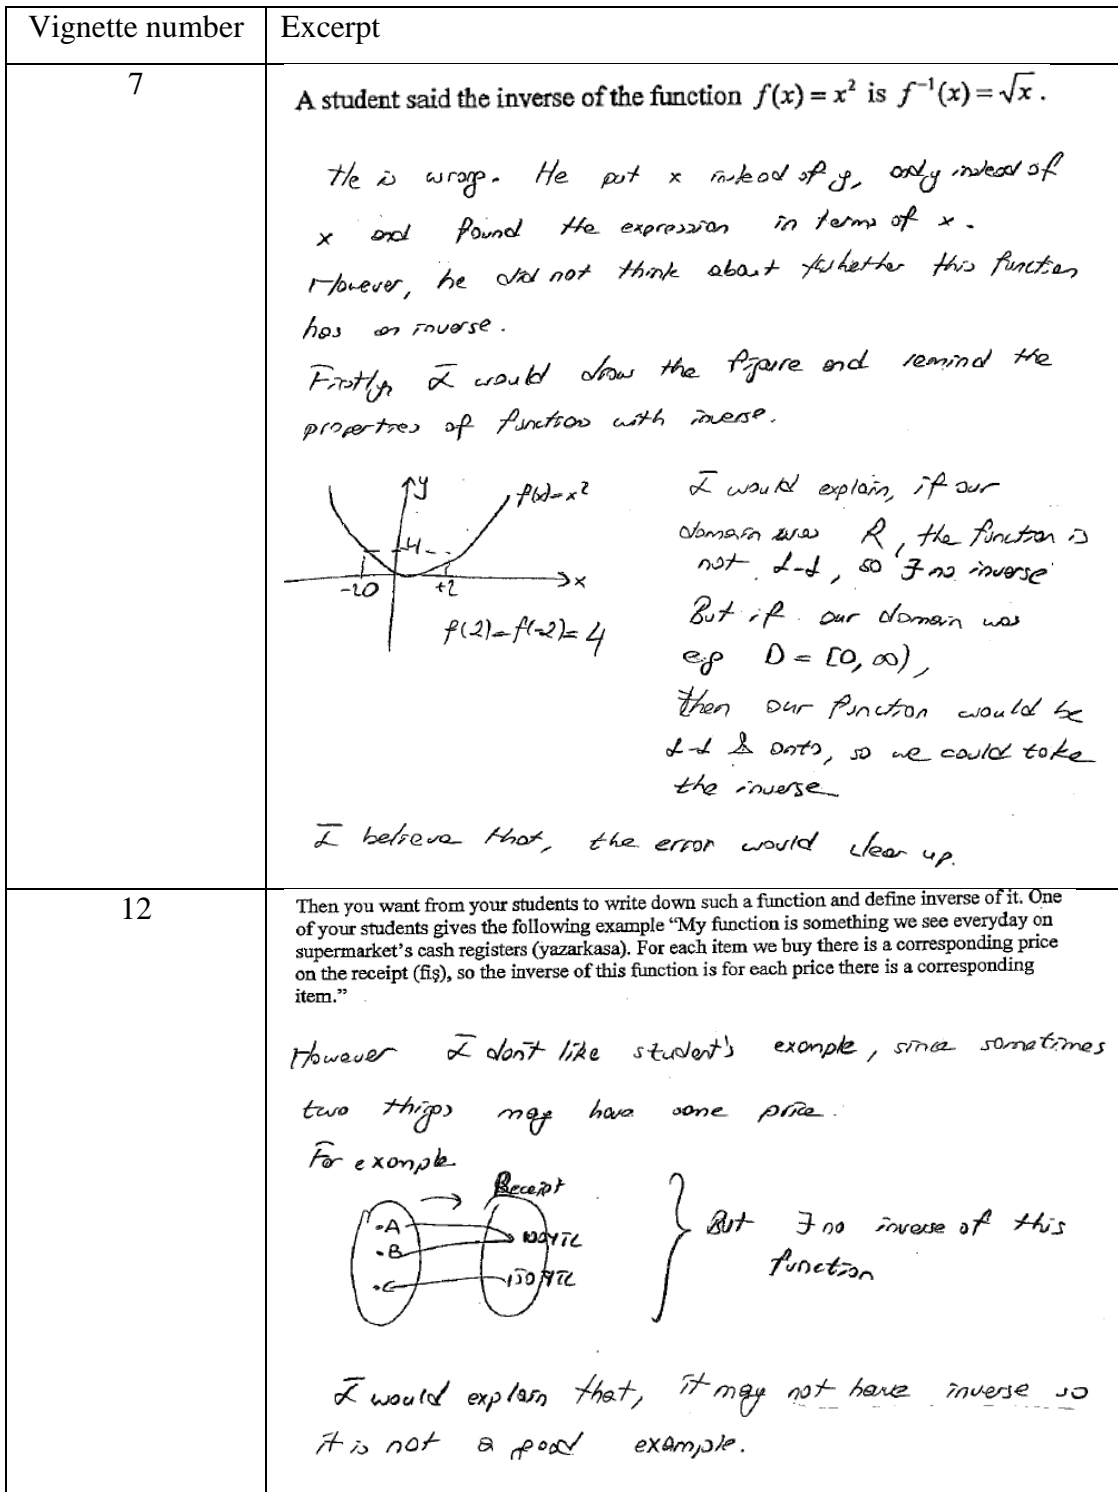 Vignette number Excerpt
7
A student said the inverse of the function f(x) = x² is f⁻¹(x) = √x .
He is wrong. He put x instead of y, only instead of
x and found the expression in terms of x.
However, he did not think about whether this function
has an inverse.
Firstly, I would draw the figure and remind the
properties of function with inverse.
y
f(x)=x²
4
-2 0 +2 x
f(2)=f(-2)=4
I would explain, if our
domain was R, the function is
not 1-1, so ∃ no inverse
But if our domain was
eg D = [0, ∞),
then our function would be
1-1 & onto, so we could take
the inverse
I believe that, the error would clear up.
12
Then you want from your students to write down such a function and define inverse of it. One
of your students gives the following example “My function is something we see everyday on
supermarket’s cash registers (yazarkasa). For each item we buy there is a corresponding price
on the receipt (fiş), so the inverse of this function is for each price there is a corresponding
item.”
However I don't like student's example, since sometimes
two things may have same price.
For example
Receipt
A
B
C
100 YTL
150 YTL
But ∃ no inverse of this
function
I would explain that, it may not have inverse so
it is not a good example.